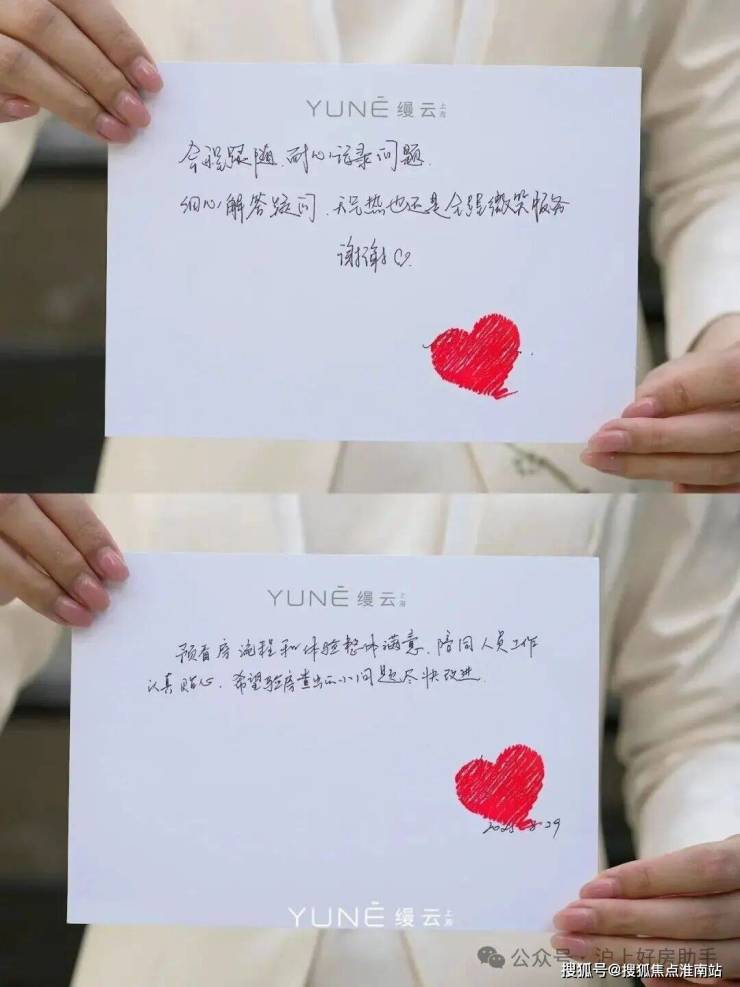 YUNĒ 缦云 上海
全程跟随、耐心记录问题、
细心解答疑问、天气热也还是全程微笑服务
谢谢♡
YUNĒ 缦云 上海
预看房流程和体验整体满意、陪同人员工作
认真贴心、希望验房查出的小问题尽快改进
2025-8-29
YUNĒ 缦云 上海
公众号·沪上好房助手
搜狐号@搜狐焦点淮南站